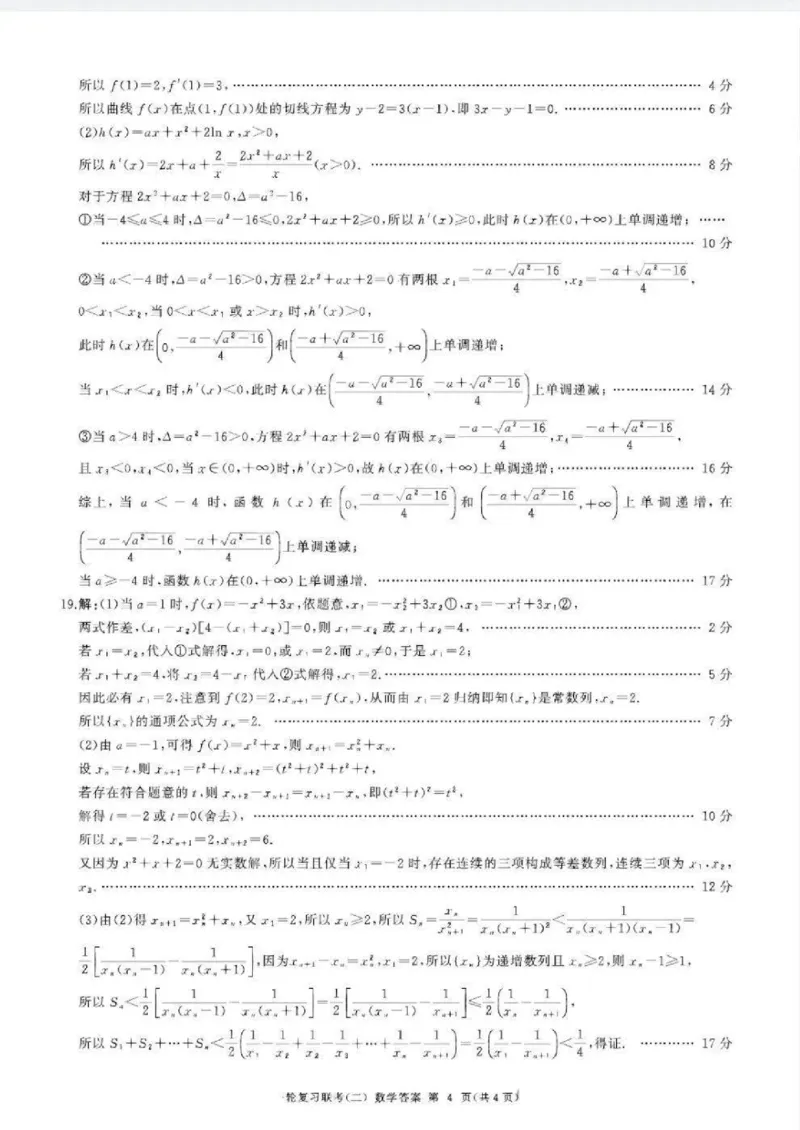 所以 f(1)=2,f′(1)=3, …… 4 分
所以曲线 f(x)在点(1,f(1))处的切线方程为 y-2=3(x-1),即 3x-y-1=0. …… 6 分
(2)h(x)=ax+x²+2ln x,x>0,
所以 h′(x)=2x+a+2/x=(2x²+ax+2)/x(x>0). …… 8 分
对于方程 2x²+ax+2=0,Δ=a²-16,
①当-4≤a≤4 时,Δ=a²-16≤0,2x²+ax+2≥0,所以 h′(x)≥0,此时 h(x)在(0,+∞)上单调递增; ……
…… 10 分
②当 a<-4 时,Δ=a²-16>0,方程 2x²+ax+2=0 有两根 x₁=(-a-√(a²-16))/4,x₂=(-a+√(a²-16))/4,
0<x₁<x₂,当 0<x<x₁ 或 x>x₂ 时,h′(x)>0,
此时 h(x)在(0,(-a-√(a²-16))/4)和((-a+√(a²-16))/4,+∞)上单调递增;
当 x₁<x<x₂ 时,h′(x)<0,此时 h(x)在((-a-√(a²-16))/4,(-a+√(a²-16))/4)上单调递减; …… 14 分
③当 a>4 时,Δ=a²-16>0,方程 2x²+ax+2=0 有两根 x₃=(-a-√(a²-16))/4,x₄=(-a+√(a²-16))/4,
且 x₃<0,x₄<0,当 x∈(0,+∞)时,h′(x)>0,故 h(x)在(0,+∞)上单调递增; …… 16 分
综上,当 a<-4 时,函数 h(x)在(0,(-a-√(a²-16))/4)和((-a+√(a²-16))/4,+∞)上单调递增,在
((-a-√(a²-16))/4,(-a+√(a²-16))/4)上单调递减;
当 a≥-4 时,函数 h(x)在(0,+∞)上单调递增. …… 17 分
19.解:(1)当 a=1 时,f(x)=-x²+3x,依题意,x₁=-x₂²+3x₂①,x₂=-x₁²+3x₁②,
两式作差,(x₁-x₂)[4-(x₁+x₂)]=0,则 x₁=x₂ 或 x₁+x₂=4, …… 2 分
若 x₁=x₂,代入①式解得,x₁=0,或 x₁=2,而 xₙ≠0,于是 x₁=2;
若 x₁+x₂=4,将 x₂=4-x₁ 代入②式解得,x₁=2. …… 5 分
因此必有 x₁=2,注意到 f(2)=2,xₙ₊₁=f(xₙ),从而由 x₁=2 归纳即知{xₙ}是常数列,xₙ=2.
所以{xₙ}的通项公式为 xₙ=2. …… 7 分
(2)由 a=-1,可得 f(x)=x²+x,则 xₙ₊₁=xₙ²+xₙ.
设 xₙ=t,则 xₙ₊₁=t²+t,xₙ₊₂=(t²+t)²+t²+t,
若存在符合题意的 t,则 xₙ₊₂-xₙ₊₁=xₙ₊₁-xₙ,即(t²+t)²=t²,
解得 t=-2 或 t=0(舍去), …… 10 分
所以 xₙ=-2,xₙ₊₁=2,xₙ₊₂=6.
又因为 x²+x+2=0 无实数解,所以当且仅当 x₁=-2 时,存在连续的三项构成等差数列,连续三项为 x₁,x₂,
x₃. …… 12 分
(3)由(2)得 xₙ₊₁=xₙ²+xₙ,又 x₁=2,所以 xₙ≥2,所以 Sₙ=xₙ/xₙ₊₁²=1/(xₙ(xₙ+1)²)<1/(xₙ(xₙ+1)(xₙ-1))=
1/2[1/(xₙ(xₙ-1))-1/(xₙ(xₙ+1))],因为xₙ₊₁-xₙ=xₙ²,x₁=2,所以{xₙ}为递增数列且 xₙ≥2,则 xₙ-1≥1,
所以 Sₙ<1/2[1/(xₙ(xₙ-1))-1/(xₙ(xₙ+1))]=1/2[1/(xₙ(xₙ-1))-1/xₙ₊₁]≤1/2(1/xₙ-1/xₙ₊₁),
所以 S₁+S₂+⋯+Sₙ<1/2(1/x₁-1/x₂+1/x₂-1/x₃+⋯+1/xₙ-1/xₙ₊₁)=1/2(1/x₁-1/xₙ₊₁)<1/4,得证. …… 17 分
一轮复习联考(二) 数学答案 第 4 页(共4页)